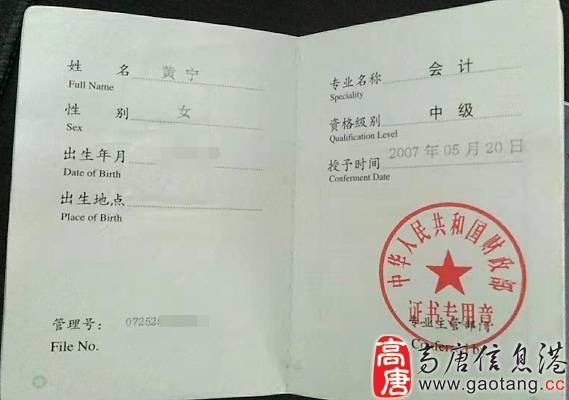 姓 名 黄宁
Full Name
性 别 女
Sex
出生年月
Date of Birth
出生地点
Place of Birth
管理号: 07252
File No.
专业名称 会计
Speciality
资格级别 中级
Qualification Level
授予时间 2007 年 05 月 20 日
Conferment Date
中华人民共和国财政部
证书专用章
专业主管部门
高唐
高唐信息港
www.gaotang.cc